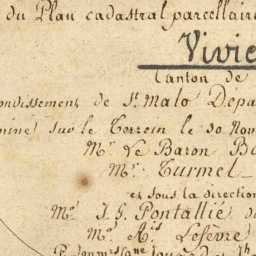 du Plan cadastral parcellaire
Vivie
Canton de
ondissement de St. Malo Depa
miné sur le Terrein le 30 Nov
Mr. Le Baron B
Mr. Turmel
et sous la direction
Mr. J. G. Pontallié
Mr. Lefèvre